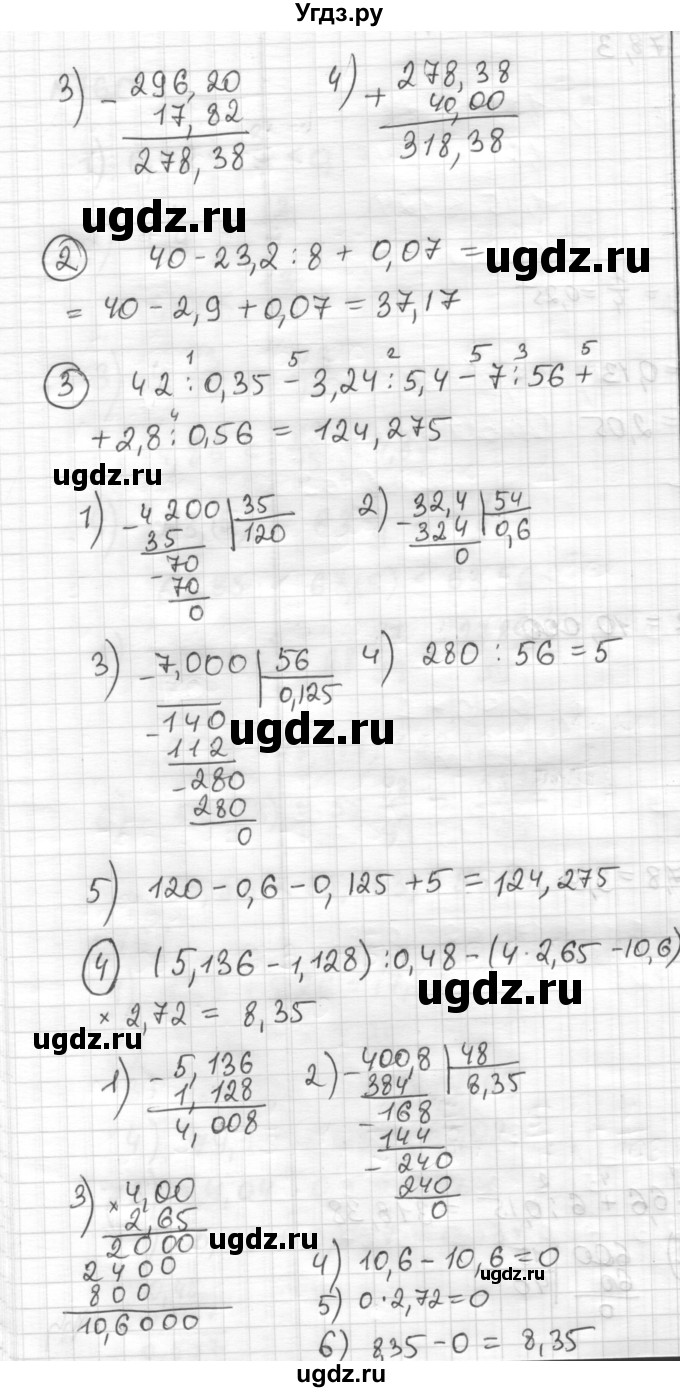 Угдз.ру
3) - 296,20 4) + 278,38
17,82 40,00
278,38 318,38
ugdz.ru
② 40 - 23,2 : 8 + 0,07 =
= 40 - 2,9 + 0,07 = 37,17
1 5 2 5 3 5
③ 42 : 0,35 - 3,24 : 5,4 - 7 : 56 +
4
+ 2,8 : 0,56 = 124,275
ugdz.ru
1) - 4200 | 35 2) - 32,4 | 54
35 120 324 0,6
- 70 0
70
0
3) - 7,000 | 56 4) 280 : 56 = 5
0,125
- 140
ugdz.ru
112
- 280
280
0
5) 120 - 0,6 - 0,125 + 5 = 124,275
④ (5,136 - 1,128) : 0,48 - (4 · 2,65 - 10,6)
ugdz.ru
× 2,72 = 8,35
ugdz.ru
1) - 5,136 2) - 400,8 | 48
1,128 384 8,35
4,008 - 168
144
- 240
240
0
3) × 4,00
2,65
2000
ugdz.ru
2400
800
10,6000
4) 10,6 - 10,6 = 0
ugdz.ru
5) 0 · 2,72 = 0
6) 8,35 - 0 = 8,35
ugdz.ru